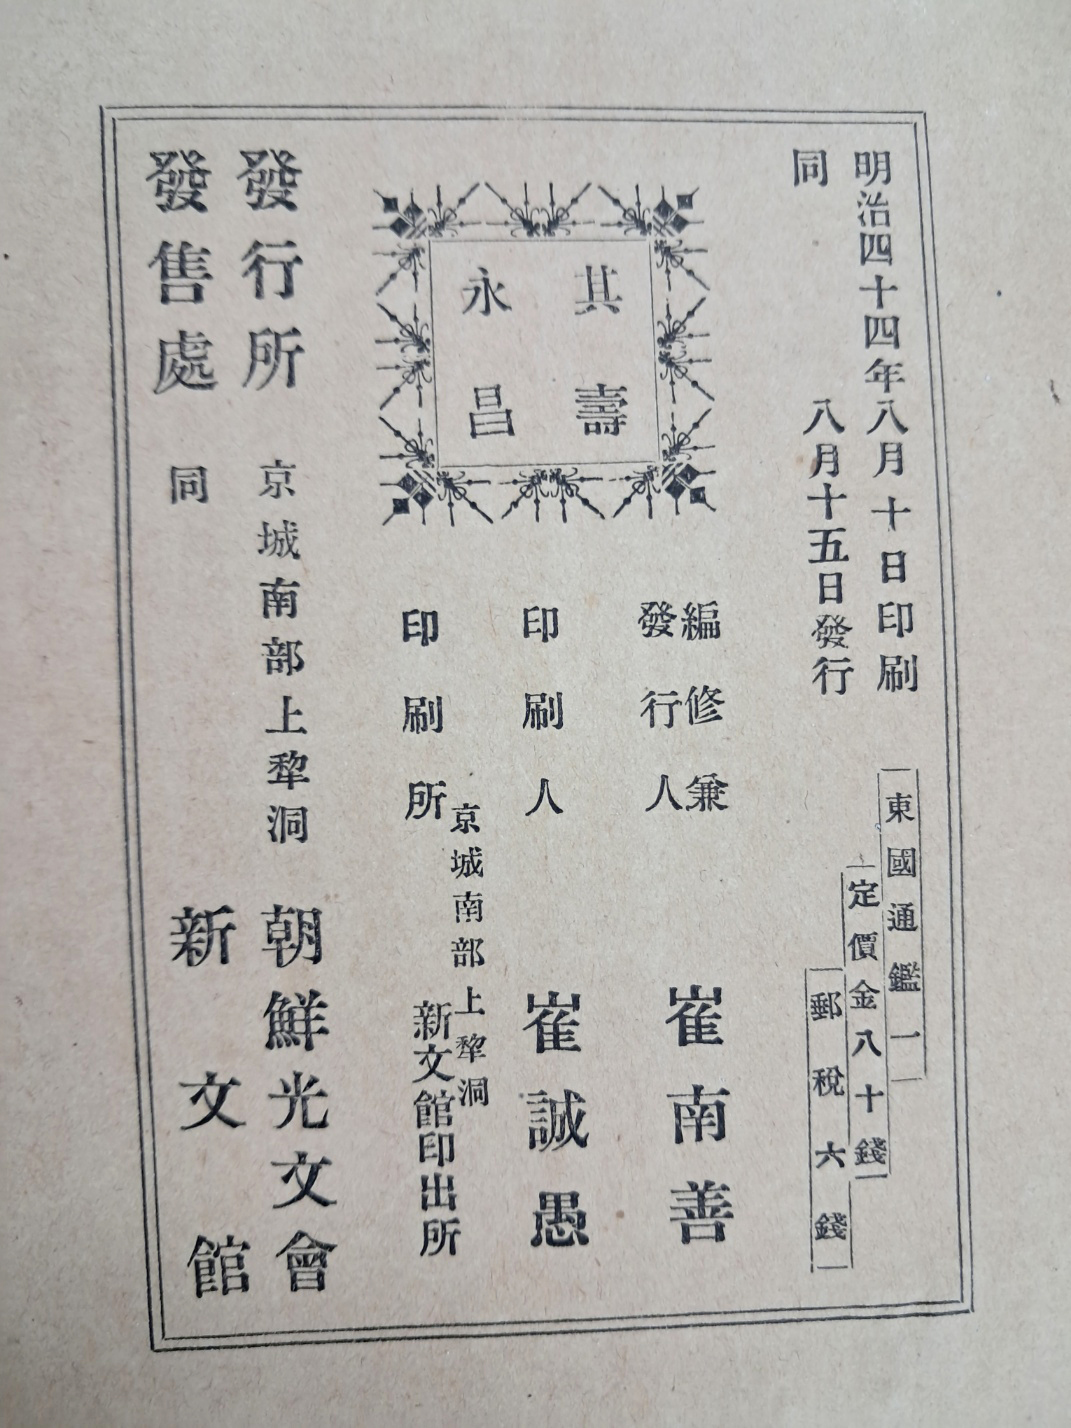 明治四十四年八月十日印刷
同 八月十五日發行
東國通鑑一
定價金八十錢
郵稅六錢
其壽
永昌
編修兼
發行人
崔南善
印刷人 崔誠愚
印刷所
京城南部上犂洞
新文館印出所
發行所 京城南部上犂洞 朝鮮光文會
發售處 同 新文館